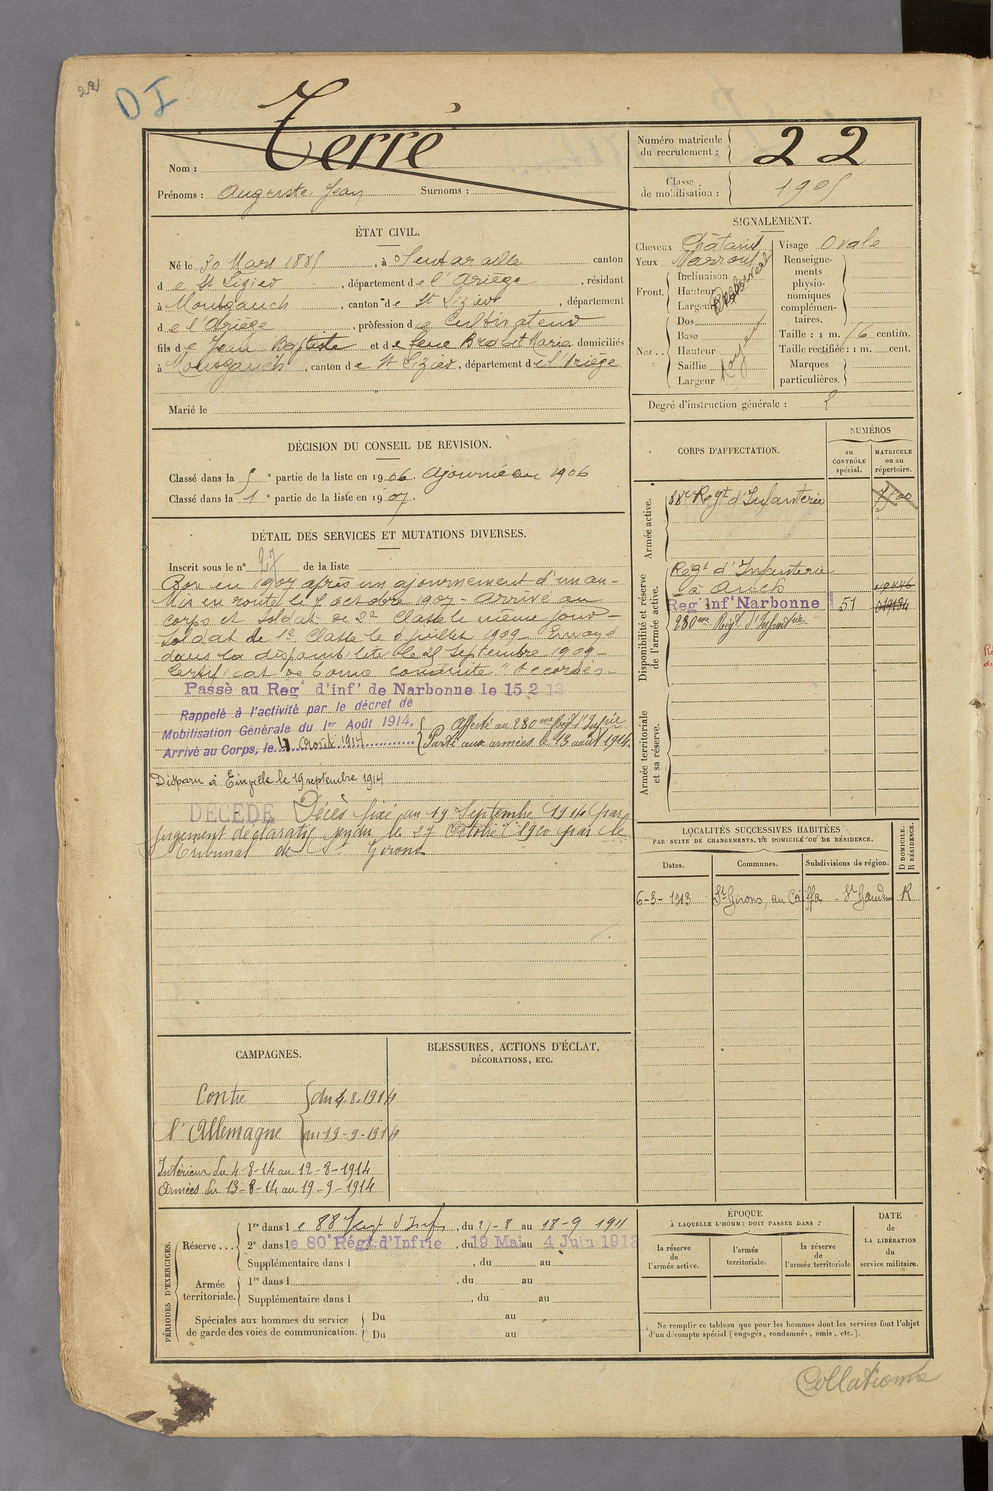 D I
Nom : Terré
Prénoms : Auguste Jean Surnoms :
Numéro matricule du recrutement : 22
Classe de mobilisation : 1905
ÉTAT CIVIL.
Né le 30 Mars 1885, à Sentaraille canton
de St Lizier, département de l'Ariège, résidant
à Montgauch, canton de St Lizier, département
de l'Ariège, profession de Cultivateur
fils de Jean Baptiste et de Marie domiciliés
à Montgauch, canton de St Lizier, département de l'Ariège
Marié le
SIGNALEMENT.
Cheveux Châtains Visage Ovale
Yeux Marrons
Front. Inclinaison
Hauteur
Largeur
Nez.. Dos
Base
Hauteur
Saillie
Largeur
Moyen
Renseignements physionomiques complémentaires.
Taille : 1 m. 76 centim.
Taille rectifiée : 1 m. cent.
Marques particulières.
Degré d'instruction générale :
DÉCISION DU CONSEIL DE REVISION.
Classé dans la 5e partie de la liste en 1906. Ajourné en 1906
Classé dans la 1e partie de la liste en 1907.
DÉTAIL DES SERVICES ET MUTATIONS DIVERSES.
Inscrit sous le n° 27 de la liste
Bon en 1907 après un ajournement d'un an -
Mis en route le 7 octobre 1907 - Arrivé au
corps et soldat de 2e Classe le même jour -
Soldat de 1e Classe le 6 juillet 1909 - Envoyé
dans la disponibilité le 25 Septembre 1909 -
Certificat de bonne conduite "Accordé" -
Passé au Reg' d'inf' de Narbonne le 15 2 13
Rappelé à l'activité par le décret de
Mobilisation Générale du 1er Août 1914,
Arrivé au Corps, le 4 Août 1914
Affecté au 280me Régt d'Infrie
Parti aux armées le 13 août 1914.
Disparu à Einville le 19 septembre 1914
DÉCÉDÉ Décès fixé au 19 Septembre 1914 par
jugement déclaratif rendu le 27 Octobre 1920 par le
Tribunal de St Girons
CORPS D'AFFECTATION.
NUMÉROS
au CONTRÔLE spécial.
MATRICULE ou au répertoire.
Armée active.
88e Regt d'Infanterie
Disponibilité et réserve de l'armée active.
Régt d'Infanterie
à Auch
Reg' Inf' Narbonne 51
280me Régt d'Infterie
Armée territoriale et sa réserve.
LOCALITÉS SUCCESSIVES HABITÉES
PAR SUITE DE CHANGEMENTS DE DOMICILE OU DE RÉSIDENCE.
Dates. Communes. Subdivisions de région. D DOMICILE. R RÉSIDENCE.
6-3-1913 St Girons, St Gaudens R
CAMPAGNES.
Contre l'Allemagne
du 4.8.1914
au 19-9-1914
Intérieur du 4-8-14 au 12-8-1914
Armées du 13-8-14 au 19-9-1914
BLESSURES, ACTIONS D'ÉCLAT,
DÉCORATIONS, ETC.
PÉRIODES D'EXERCICES.
Réserve... 1re dans le 88 Regt d'Inf, du 27-8 au 18-9 1911
2e dans le 80e Régt d'Infrie, du 19 Mai au 4 Juin 1913
Supplémentaire dans l , du au
Armée territoriale. 1re dans l , du au
Supplémentaire dans l , du au
Spéciales aux hommes du service de garde des voies de communication. Du au
Du au
ÉPOQUE
À LAQUELLE L'HOMME DOIT PASSER DANS :
la réserve de l'armée active.
l'armée territoriale.
la réserve de l'armée territoriale
DATE de LA LIBÉRATION du service militaire.
Ne remplir ce tableau que pour les hommes dont les services font l'objet
d'un décompte spécial (engagés, condamnés, omis, etc.).
Collationné